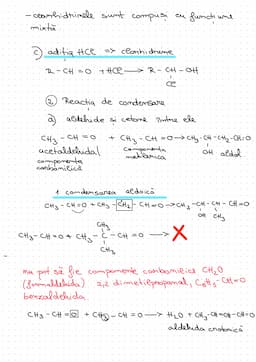 - cianhidrinele sunt compuși cu funcțiune
mixtă
c) adiția HCl => clorhidrine
R - CH = O + HCl → R - CH - OH
Cl
② Reacția de condensare
a) aldehide și cetone între ele
CH3 - CH = O + CH3 - CH = O → CH3-CH-CH2-CH=O
OH aldol
acetaldehida/ componenta
componenta metilenică
carbonilică
1. condensarea aldolică
CH3 - CH = O + CH3 - CH2 - CH=O → CH3-CH-CH-CH=O
OH CH3
CH3
CH3-CH=O + CH3 - C - CH = O → X
CH3
nu pot să fie componente carbonilice CH2O
(formaldehida) 2,2 dimetilpropanal, C6H5-CH=O
benzaldehida.
CH3 - CH = O + CH3 - CH = O → H2O + CH3-CH=CH-CH=O
aldehida crotonică